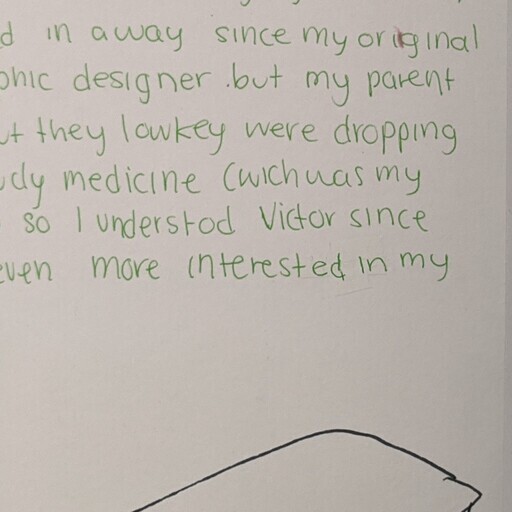 d in away since my original
phic designer .but my parent
ut they lowkey were dropping
udy medicine (wichuas my
so I understod Victor since
even more interested in my